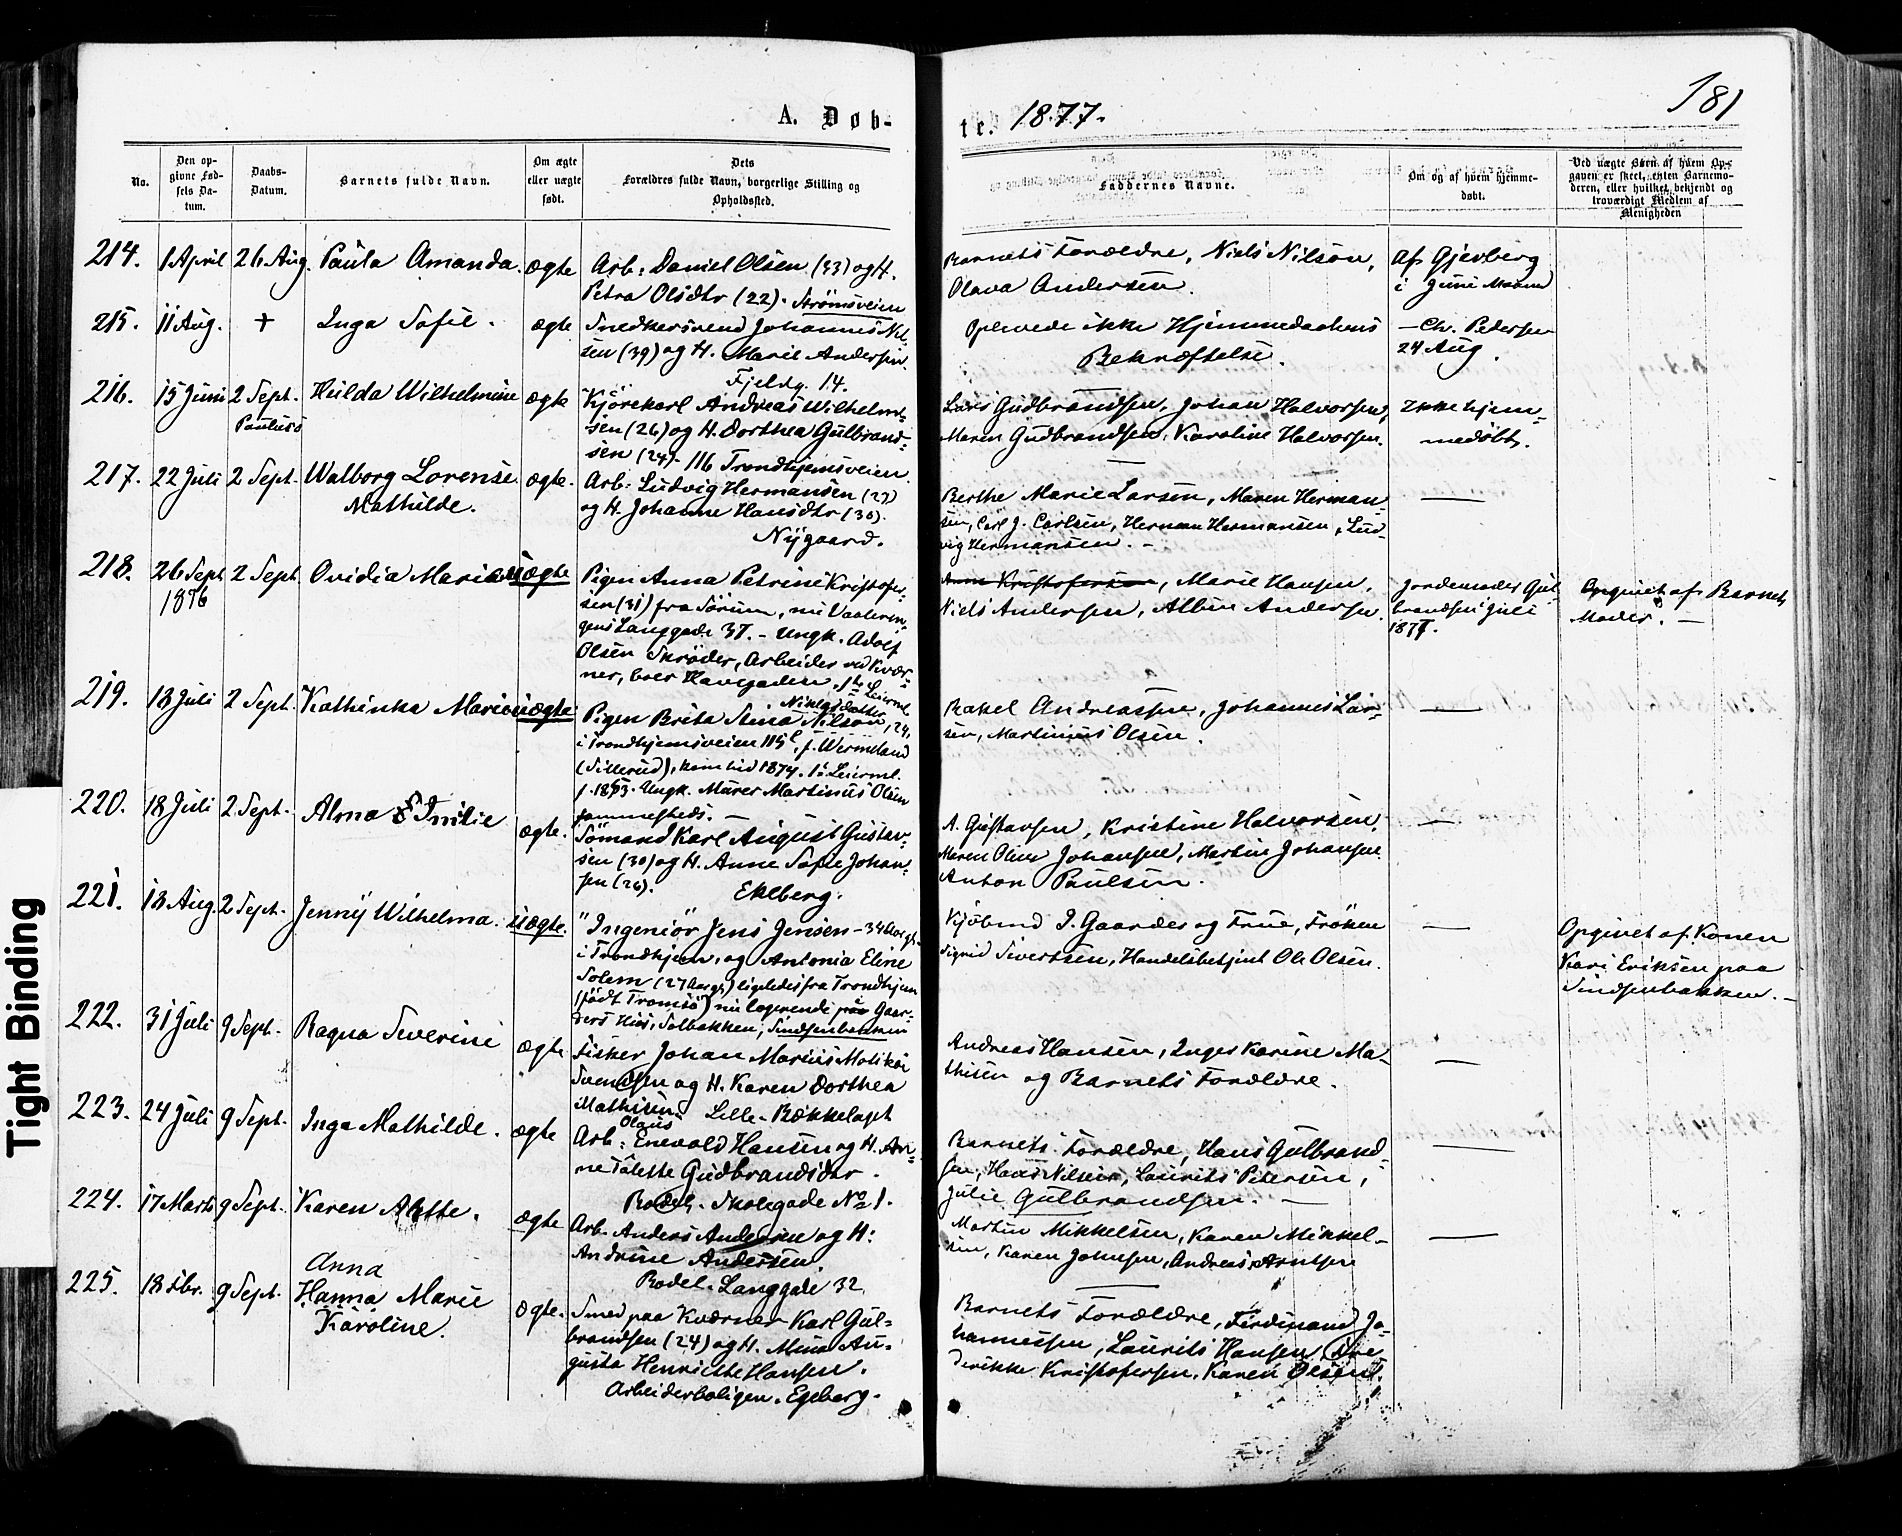 181
A. Døb-
te. 1877.
No.
Den op-
givne Fød-
sels Da-
tum.
Daabs-
Datum.
Barnets fulde Navn.
Om ægte
eller uægte
født.
Dets
Forældres fulde Navn, borgerlige Stilling og
Opholdssted.
Faddernes Navne.
Om og af hvem hjemme-
døbt.
Ved uægte Børn af hvem Op-
gaven er skeet, enten Barnemo-
deren, eller hvilket bekjendt og
troværdigt Medlem af
Menigheden
214. 1 April 26 Aug. Paula Amanda. ægte
Arb. Daniel Olsen (33) og H.
Petra Olsdtr (22). Strømsveien
Barnets Forældre, Niels Nilson,
Olava Andersen.
Af Gjerberg
i Juni Maaned
215. 11 Aug. + Inga Sofie. ægte
Snedkersvend Johannes Nil-
sen (39) og H. Marie Andersen.
Fjeldg. 14.
Oplevede ikke Hjemmedaabens
Bekræftelse.
— Chr. Pedersen
24 Aug.
216. 15 Juni 2 Sept. Hulda Wilhelmine ægte
Paulus
Kjørekarl Andreas Wilhelm-
sen (26) og H. Dorthea Gulbrand-
sen (24) - 116 Trondhjemsveien
Lars Gudbrandsen, Johan Halvorsen,
Maren Gudbrandsen, Karoline Halvorsen.
Ikke hjem-
medøbt.
217. 22 Juli 2 Sept. Walborg Lorense ægte.
Mathilde.
Arb. Ludvig Hermansen (27)
og H. Johanne Hansdtr (30).
Nygaard.
Berthe Marie Larsen, Maren Herman-
sen, Carl J. Carlsen, Herman Hermansen, Lud-
vig Hermansen. -
—
218. 26 Sept. 2 Sept. Ovidia Maria uægte
1876
Pigen Anna Petrine Kristofer-
sen (31) fra Sørum, nu Vaaleren-
gens Langgade 37. - Ungk. Adolf
Olsen Skrøder, Arbeider ved Kvær-
ner, boer Havegaden. 1ste Leierml.
Anna Kristofersen, Marie Hansen,
Niels Andersen, Albin Andersen.
Jordemoder Gul-
brandsen Juli
1877.
Opgivet af Barnets
Moder. -
219. 13 Juli 2 Sept. Kathinka Marie uægte
Niklasdatter
Pigen Brita Stina Nilson, 24,
i Trondhjemsveien 115, f. Wermeland
(Sillerud), kom hid 1874. 1ste Leierml.
f. 1853. Ungk. Murer Martinus Olsen
sammesteds. —
Rakel Andreassen, Johannes Lar-
sen, Martinus Olsen.
—
220. 18 Juli 2 Sept. Alma Emilie ægte.
Sømand Karl August Gustav-
sen (30) og H. Anne Sofie Johan-
sen (26). Ekeberg.
A. Gustavsen, Kristine Halvorsen,
Maren Oline Johansen, Martin Johansen
Anton Paulsen.
—
221. 18 Aug. 2 Sept. Jenny Wilhelma. uægte.
"Ingeniør Jens Jensen - 34 Aar gl.
i Trondhjem, og Antonia Eline
Solem (27 Aar gl.) ligeledes fra Trondhjem
(født Tromsø") nu logerende paa Gaar-
ders Hus, Solbakken, Sindsenbakken
Kjøbmd J. Gaarder og Frue, Frøken
Sigrid Sivertsen, Handelsbetjent Ole Olsen.
—
Opgivet af Konen
Kari Eriksen paa
Sindsenbakken. -
222. 31 Juli 9 Sept. Ragna Severine ægte
Fisker Johan Marius Molikai
Svendsen og H. Karen Dorthea
Mathisen Lille-Bækkelaget
Andreas Hansen, Inger Karine Ma-
thisen og Barnets Forældre.
—
223. 24 Juli 9 Sept. Inga Mathilde. ægte
Olaus
Arb. Enevold Hansen og H. An-
ne Talette Gudbrandsdtr.
Rodel. Skolegade No 1.
Barnets Forældre, Hans Gulbrand-
sen, Hans Nilsen, Laurits Petersen,
Julie Gulbrandsen. —
—
224. 17 Marts 9 Sept. Karen Alette. ægte
Arb. Anders Andersen og H:
Andrine Andersen.
Rodel. Langgade 32.
Martin Mikkelsen, Karen Mikkel-
sen, Karen Johnsen, Andreas Arntsen
—
225. 18 Fbr. 9 Sept. Anna
Hanna Marie
Karoline. ægte.
Smed paa Kværner Karl Gul-
brandsen (24) og H. Mina Au-
gusta Henriette Hansen.
Arbeiderboligen. Egeberg.
Barnets Forældre, Ferdinand Jo-
hannessen, Laurits Hansen, Fre-
derikke Kristofersen, Karen Olsen.
Tight Binding